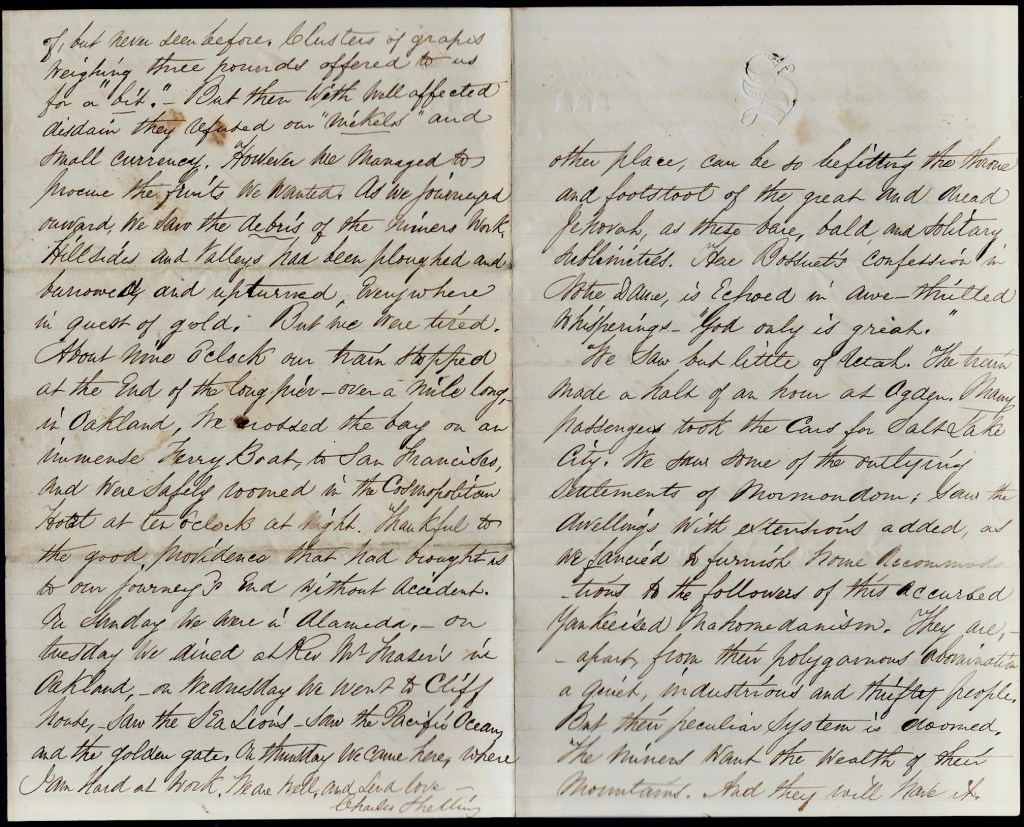 of, but never seen before. Clusters of grapes
weighing three pounds offered to us
for a "bit." – But then with well affected
disdain they refused our "nickels" and
small currency. However we managed to
procure the fruits we wanted. As we journeyed
onward, we saw the debris of the miners work.
Hillsides and valleys had been ploughed and
burrowed and upturned, Everywhere
in quest of gold. But we were tired.
About nine o'clock our train stopped
at the End of the long pier – over a mile long,
in Oakland, We crossed the bay on an
immense Ferry Boat, to San Francisco,
and were safely roomed in the Cosmopolitan
Hotel at ten o'clock at night. Thankful to
the good, providence that had brought us
to our journey's End without accident.
On Sunday we were in Alameda, – on
tuesday we dined at Rev Mr Frasers in
Oakland, – on Wednesday we went to Cliff
house, – saw the Sea Lions – saw the Pacific Ocean,
and the golden gate. On thursday we came here, where
I am hard at work. We are well, and send love –
Charles
S
other place, can be so befitting the throne
and footstool of the great and dread
Jehovah, as these bare, bald and solitary
sublimities. Here Bossuet's confession in
Notre Dame, is Echoed in awe-thrilled
whisperings – "God only is great."
We saw but little of Utah. The train
made a halt of an hour at Ogden. Many
passengers took the Cars for Salt Lake
City. We saw some of the outlying
settlements of Mormondom; saw the
dwellings with extensions added, as
we fancied to furnish home accommoda
-tions to the followers of this accursed
Yankeeised Mahomedanism. They are, –
– apart, from their polygamous abomination
a quiet, industrious and thrifty people.
But their peculiar system is doomed.
The miners want the wealth of their
Mountains. And they will have it.